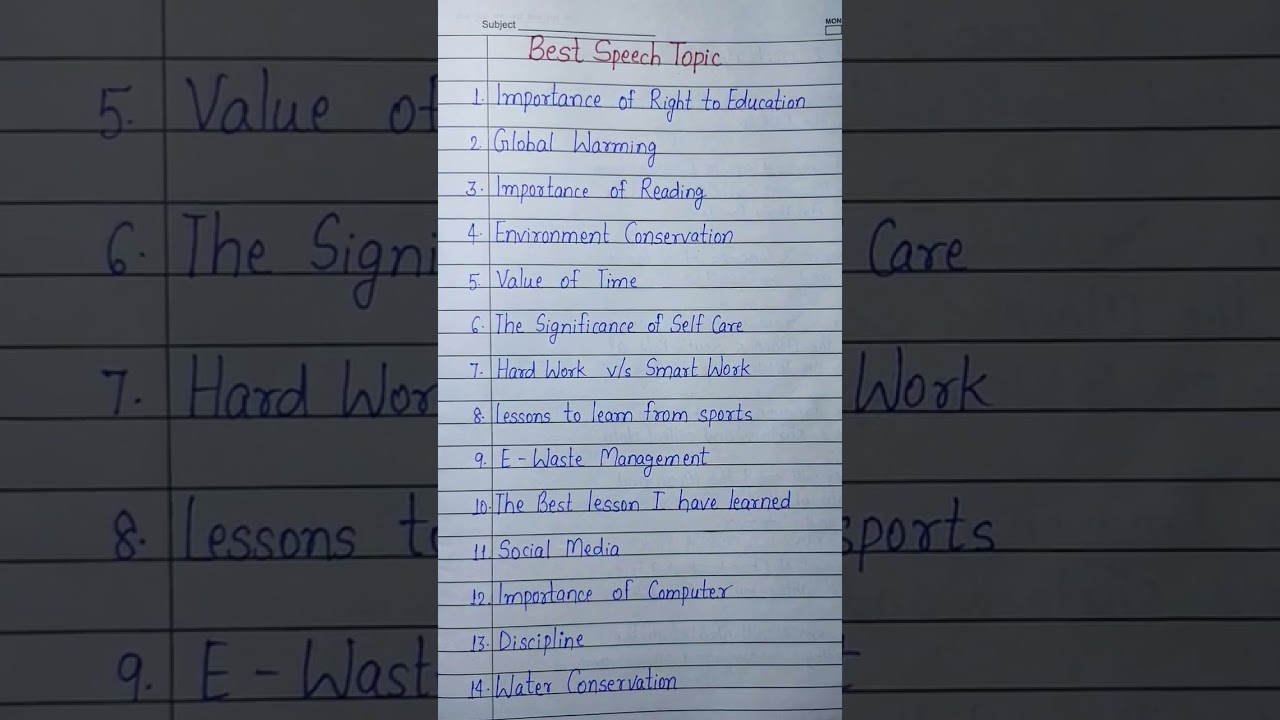 Subject
MON
Best Speech Topic
1. Importance of Right to Education
2. Global Warming
3. Importance of Reading
4. Environment Conservation
5. Value of Time
6. The Significance of Self Care
7. Hard Work v/s Smart Work
8. Lessons to learn from sports
9. E - Waste Management
10. The Best lesson I have learned
11. Social Media
12. Importance of Computer
13. Discipline
14. Water Conservation